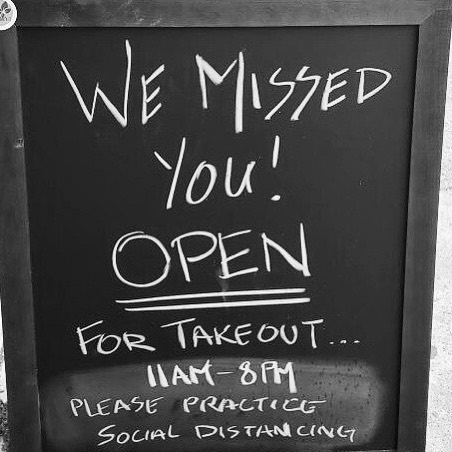 WE MISSED
You!
OPEN
FOR TAKEOUT...
11AM-8PM
PLEASE PRACTICE
SOCIAL DISTANCING